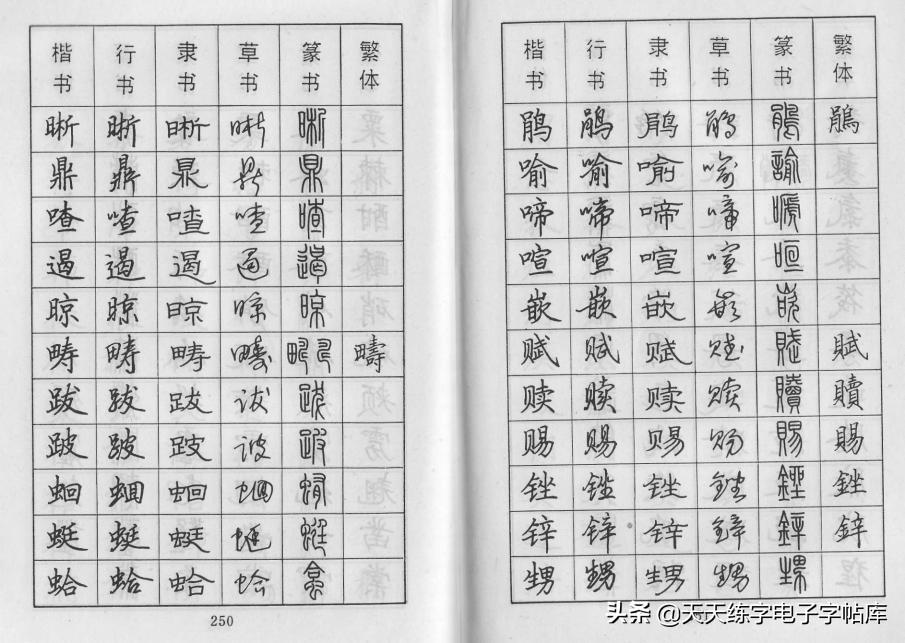 楷书 行书 隶书 草书 篆书 繁体
晰 晰 晰 晰 晰
鼎 鼎 鼎 鼎 鼎
喳 喳 喳 喳 喳
遏 遏 遏 遏 遏
晾 晾 晾 晾 晾
畴 畴 畴 畴 畴 疇
跋 跋 跋 跋 跋
跛 跛 跛 跛 跛
蛔 蛔 蛔 蛔 蛔
蜓 蜓 蜓 蜓 蜓
蛤 蛤 蛤 蛤 蛤
250
楷书 行书 隶书 草书 篆书 繁体
鹃 鹃 鹃 鹃 鵑 鵑
喻 喻 喻 喻 諭
啼 啼 啼 啼
喧 喧 喧 喧
嵌 嵌 嵌 嵌 嵌
赋 赋 赋 赋 賦 賦
赎 赎 赎 赎 贖 贖
赐 赐 赐 赐 賜 賜
锉 锉 锉 锉 銼
锌 锌 锌 锌 鋅 鋅
甥 甥 甥 甥 甥
头条 @天天练字电子字帖库